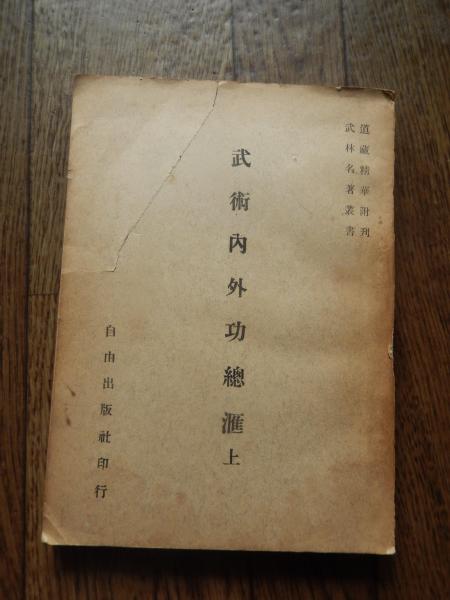 道藏精華附刊
武林名著叢書
武術內外功總滙上
自由出版社印行